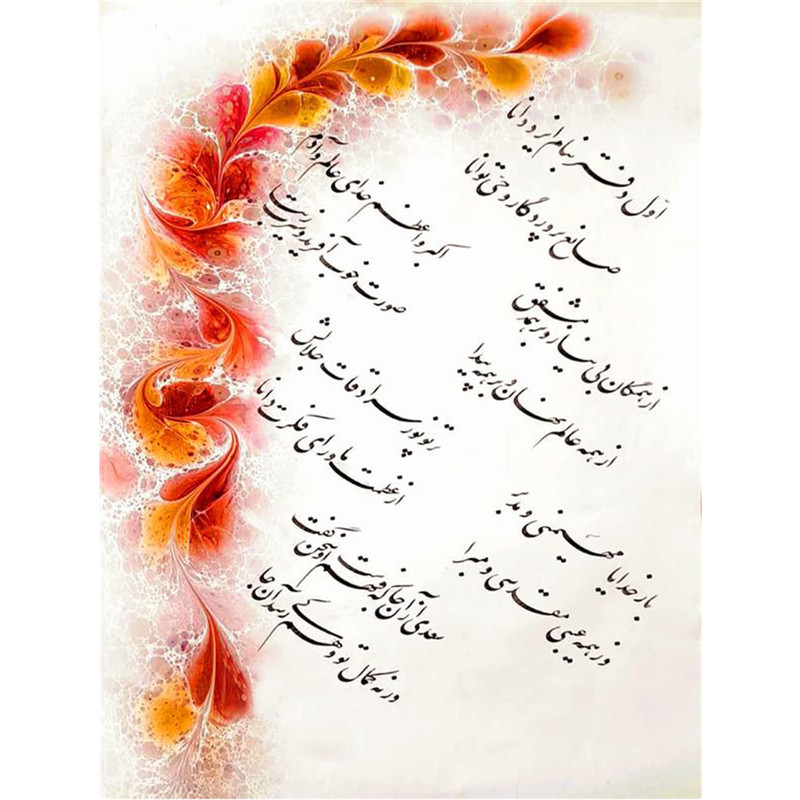 اول دفتر بنام ایزد دانا
صانع پروردگار حی توانا
اکبر و اعظم خدای عالم و آدم
صورت خوب آفرید و سیرت زیبا
از همگان بی نیاز و بر همه مشفق
از همه عالم نهان و بر همه پیدا
پرتو نور سرادقات جلالش
از عظمت ماورای فکرت دانا
بارخدایا مهیمنی و مدبر
وز همه عیبی مقدسی و مبرا
سعدی از آن جا که فهم اوست سخن گفت
ورنه کمال تو وهم کی رسد آن جا